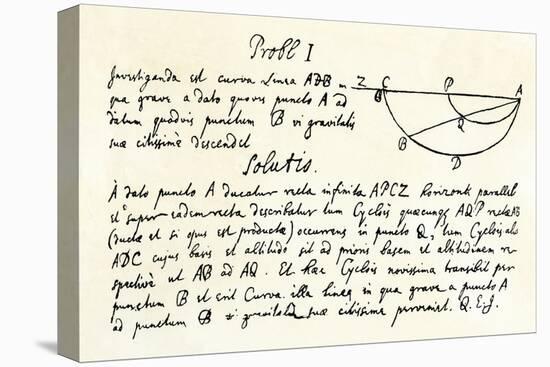 Probl I
Investiganda est curva Linea ADB in
qua grave a dato quovis puncto A ad
datum quodvis punctum B vi gravitatis
suæ citissimè descendet
Z C P A
B Q
B D
Solutio.
À dato puncto A ducatur recta infinita APCZ horizonti parallel
et super eadem recta describatur tum Cyclois quæcunq AQP rectæ AB
(ductæ et si opus est productæ) occurrens in puncto Q, tum Cyclois alia
ADC cujus basis et altitudo sit ad prioris basem et altitudinem re
spectivè ut AB ad AQ. Et hæc Cyclois novissima transibit per
punctum B et erit Curva illa linea in qua grave a puncto A
ad punctum B vi gravitatis suæ citissime perveniet. Q.E.I.